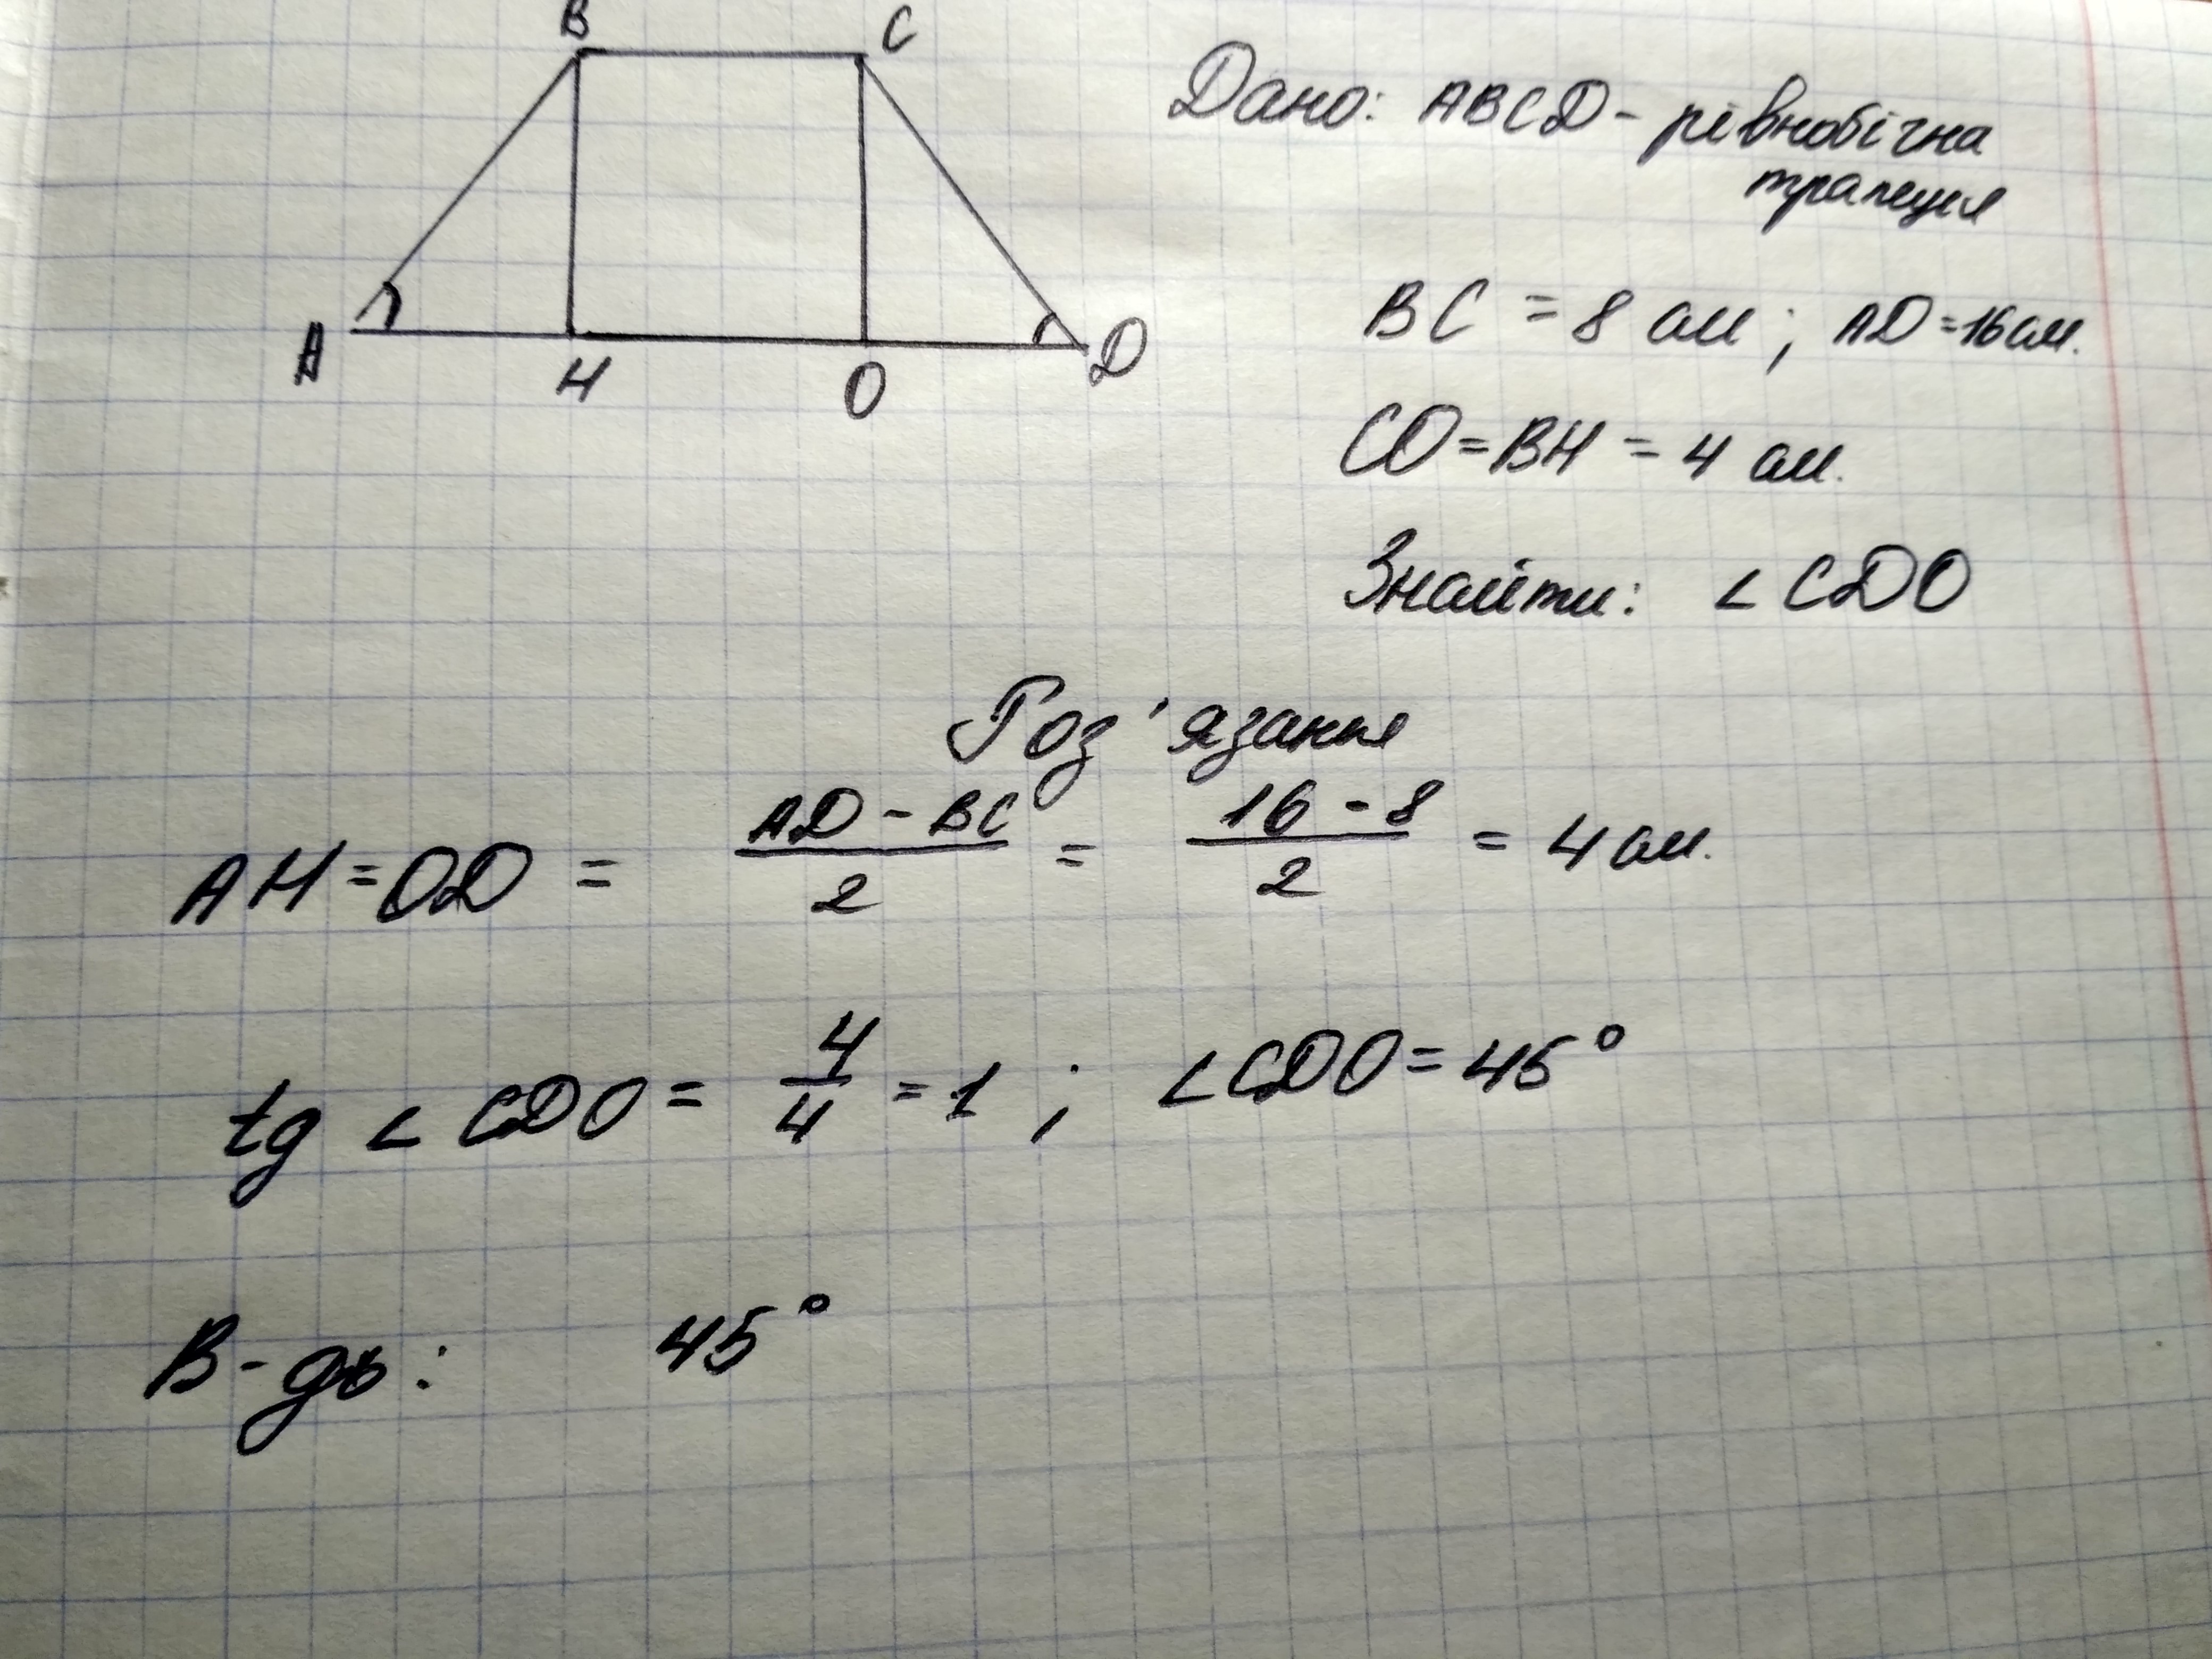 B C
A H O D
Дано: ABCD - рівнобічна
трапеція
BC = 8 см; AD = 16 см.
CO = BH = 4 см.
Знайти: ∠CDO
Роз'язання
AH = OD = (AD - BC)/2 = (16 - 8)/2 = 4 см.
tg ∠CDO = 4/4 = 1; ∠CDO = 45°
В-дь: 45°